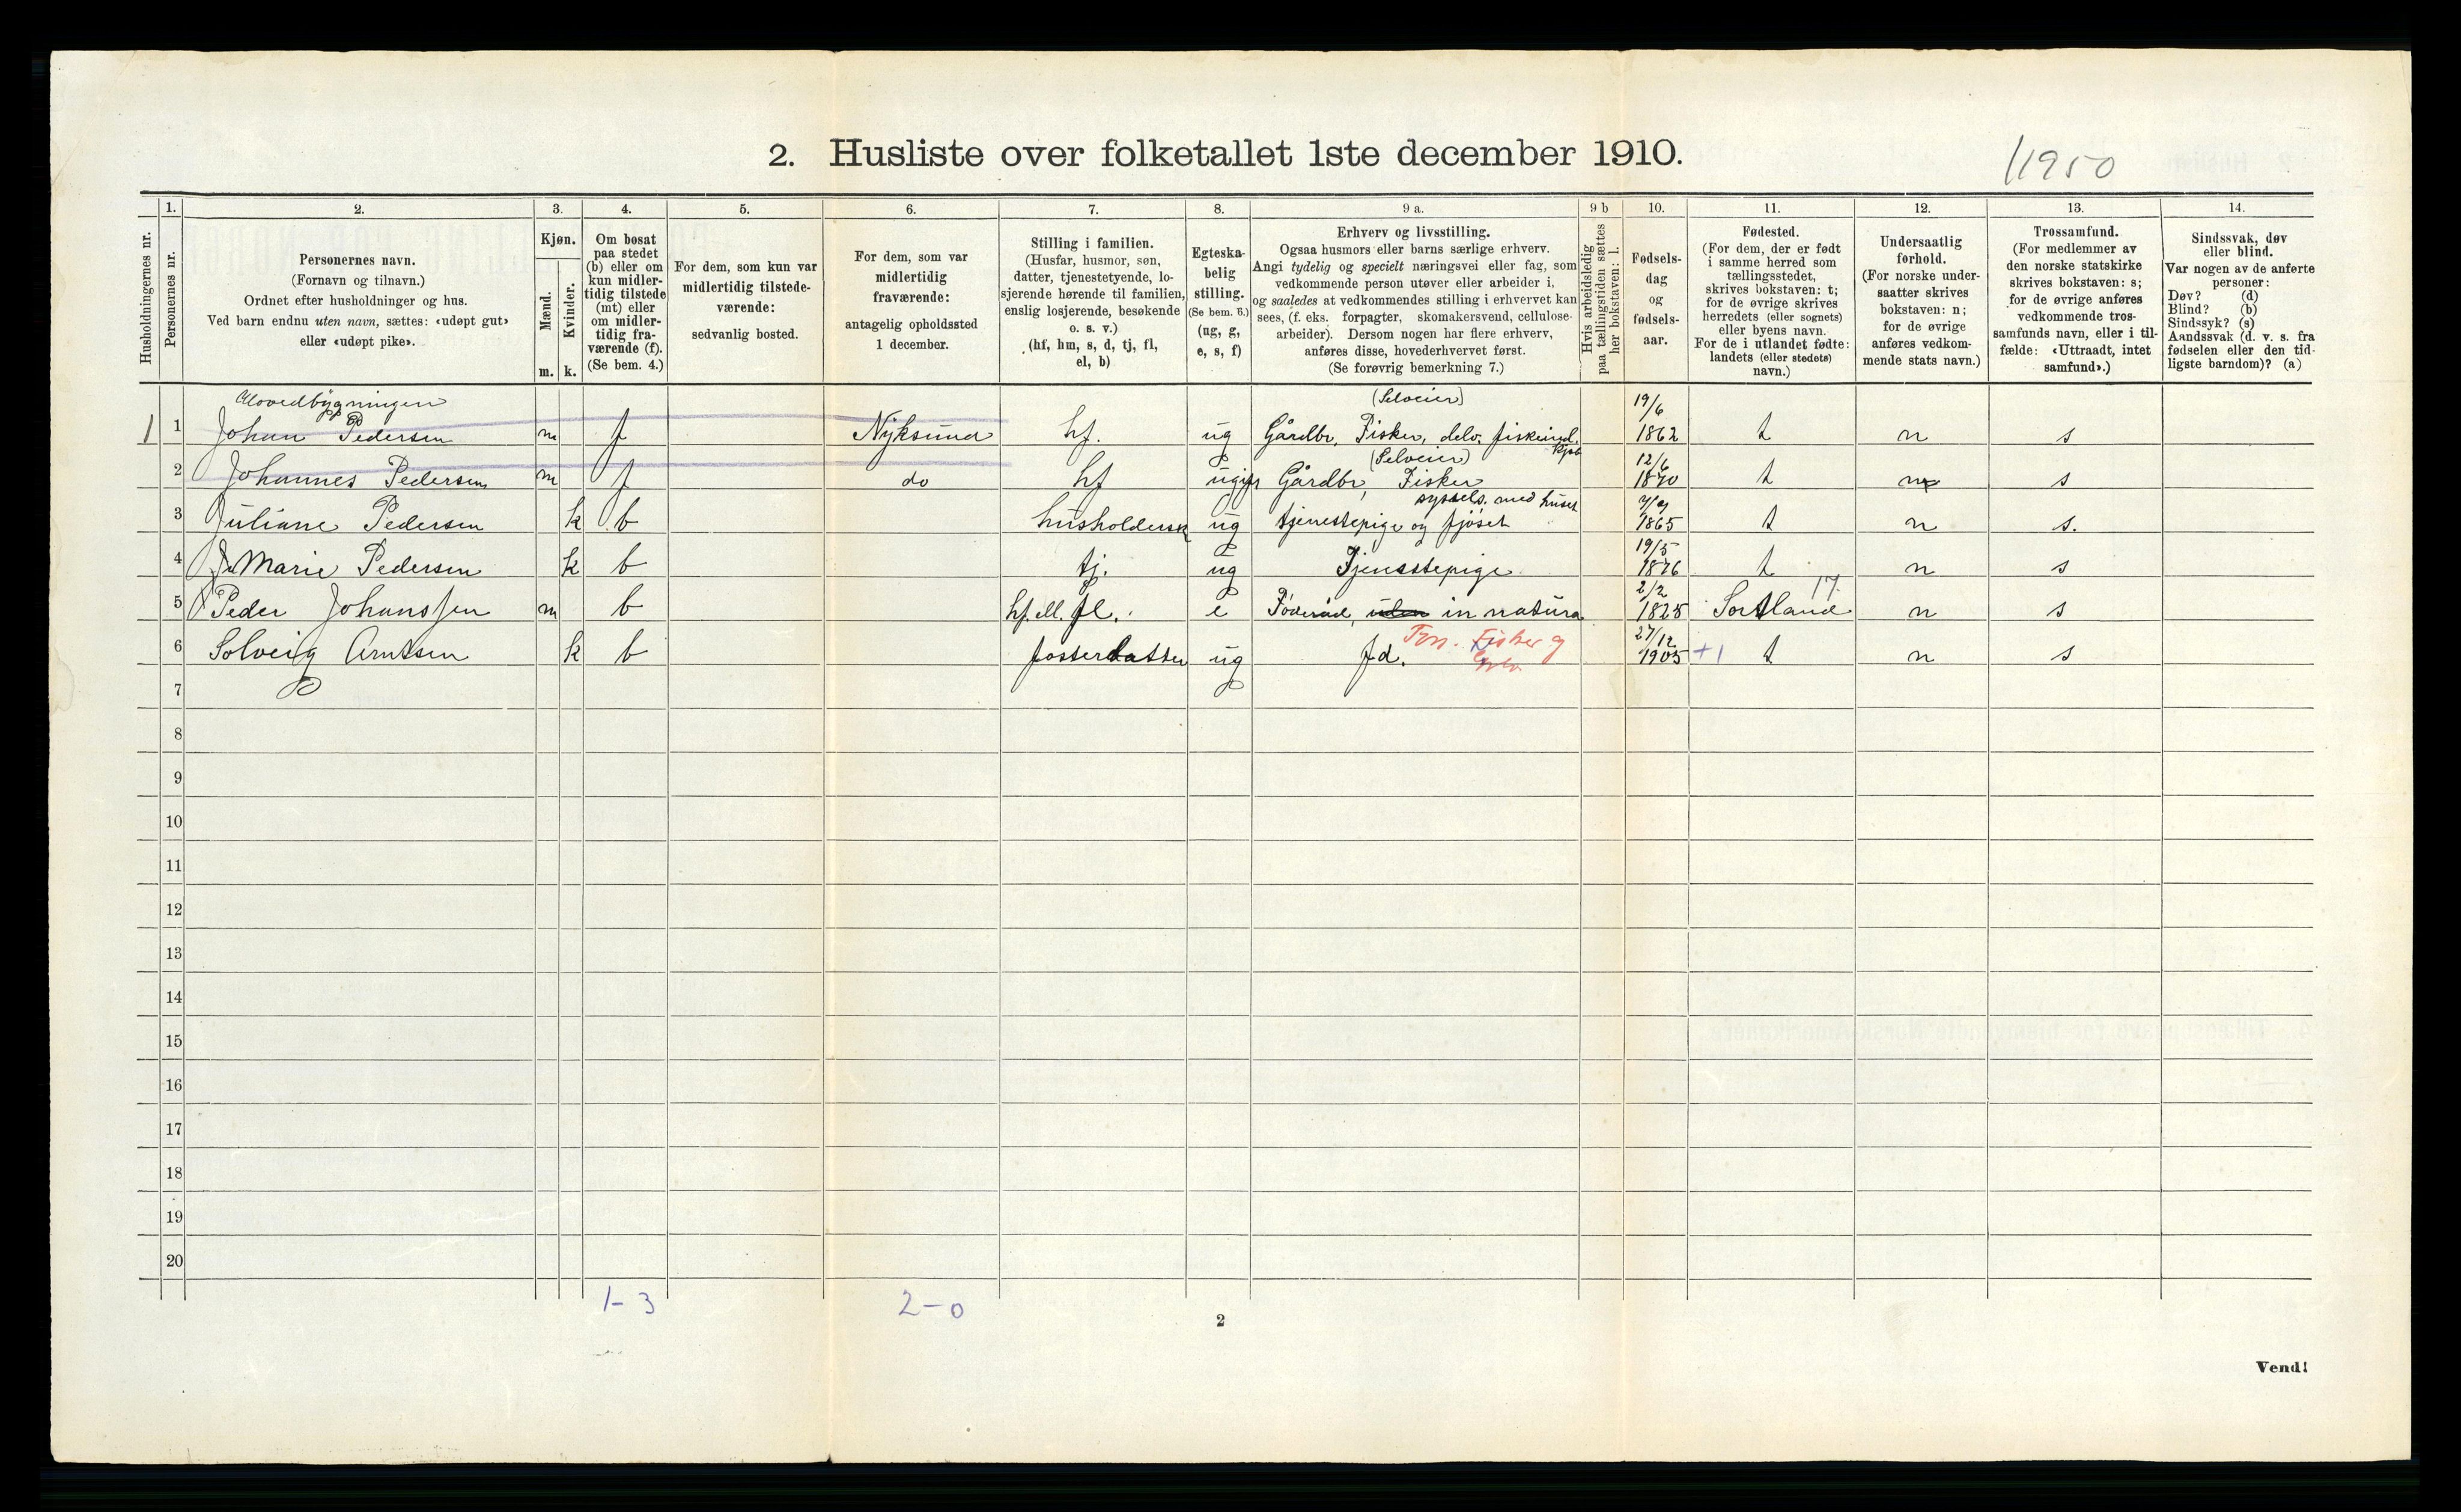 2. Husliste over folketallet 1ste december 1910.
11950
Husholdningernes nr.
1.
Personernes nr.
2.
Personernes navn.
(Fornavn og tilnavn.)
Ordnet efter husholdninger og hus.
Ved barn endnu uten navn, sættes: «udøpt gut»
eller «udøpt pike».
3.
Kjøn.
Mænd.
Kvinder.
m. k.
4.
Om bosat
paa stedet
(b) eller om
kun midler-
tidig tilstede
(mt) eller
om midler-
tidig fra-
værende (f).
(Se bem. 4.)
5.
For dem, som kun var
midlertidig tilstede-
værende:
sedvanlig bosted.
6.
For dem, som var
midlertidig
fraværende:
antagelig opholdssted
1 december.
7.
Stilling i familien.
(Husfar, husmor, søn,
datter, tjenestetyende, lo-
sjerende hørende til familien,
enslig losjerende, besøkende
o. s. v.)
(hf, hm, s, d, tj, fl,
el, b)
8.
Egteska-
belig
stilling.
(Se bem. 6.)
(ug, g,
e, s, f)
9 a.
Erhverv og livsstilling.
Ogsaa husmors eller barns særlige erhverv.
Angi tydelig og specielt næringsvei eller fag, som
vedkommende person utøver eller arbeider i,
og saaledes at vedkommendes stilling i erhvervet kan
sees, (f. eks. forpagter, skomakersvend, cellulose-
arbeider). Dersom nogen har flere erhverv,
anføres disse, hovederhvervet først.
(Se forøvrig bemerkning 7.)
9 b
Hvis arbeidsledig
paa tællingstiden sættes
her bokstaven: l.
10.
Fødsels-
dag
og
fødsels-
aar.
11.
Fødested.
(For dem, der er født
i samme herred som
tællingsstedet,
skrives bokstaven: t;
for de øvrige skrives
herredets (eller sognets)
eller byens navn.
For de i utlandet fødte:
landets (eller stedets)
navn.)
12.
Undersaatlig
forhold.
(For norske under-
saatter skrives
bokstaven: n;
for de øvrige
anføres vedkom-
mende stats navn.)
13.
Trossamfund.
(For medlemmer av
den norske statskirke
skrives bokstaven: s;
for de øvrige anføres
vedkommende tros-
samfunds navn, eller i til-
fælde: «Uttraadt, intet
samfund».)
14.
Sindssvak, døv
eller blind.
Var nogen av de anførte
personer:
Døv? (d)
Blind? (b)
Sindssyk? (s)
Aandssvak (d. v. s. fra
fødselen eller den tid-
ligste barndom)? (a)
Hovedbygningen (Selveier) 19/6
1 1 Johan Pedersen m f Nyksund hf. ug Gårdbr, Fisker, delv. 1862 t n s
(Selveier) 12/6
2 Johannes Pedersen m f do hf Gårdbr, Fisker 1870 t n s
syssels. med huset
3 Juliane Pedersen k b husholdersk ug tjenestepige og fjöset 1865 t n s.
19/5
4 Marie Pedersen k b tj. ug Tjenestepige 1876 t n s
2/2 17
5 Peder Johanssen m b hf. ell. fl. e Föderåd, uden in natura 1825 Sortland n s
Fisker og 27/12
6 Solveig Arntsen k b fosterdatter ug fd. 1905 +1 t n s
7
8
9
10
11
12
13
14
15
16
17
18
19
20
1-3 2-0
2
Vend!